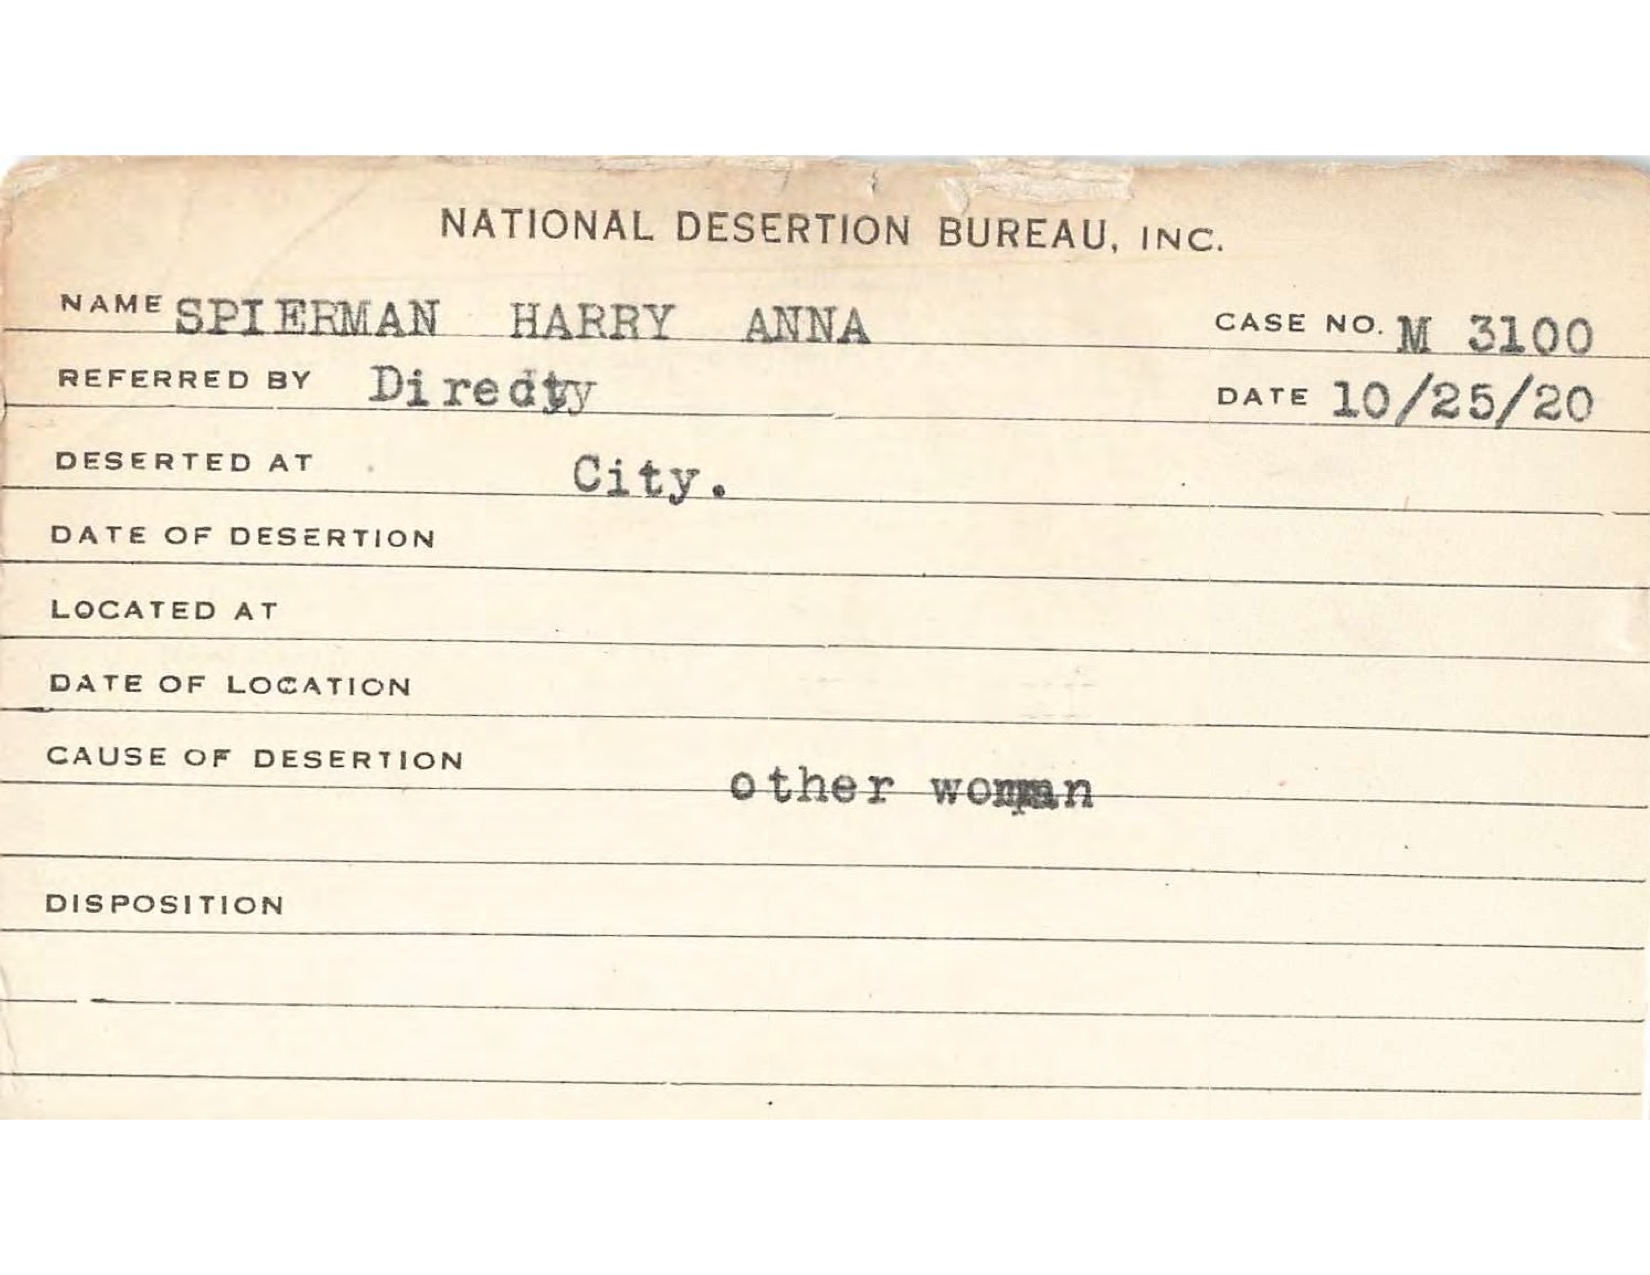 NATIONAL DESERTION BUREAU, INC.
NAME SPIERMAN HARRY ANNA CASE NO. M 3100
REFERRED BY DATE 10/25/20
DESERTED AT City.
DATE OF DESERTION
LOCATED AT
DATE OF LOCATION
CAUSE OF DESERTION
other woman
DISPOSITION